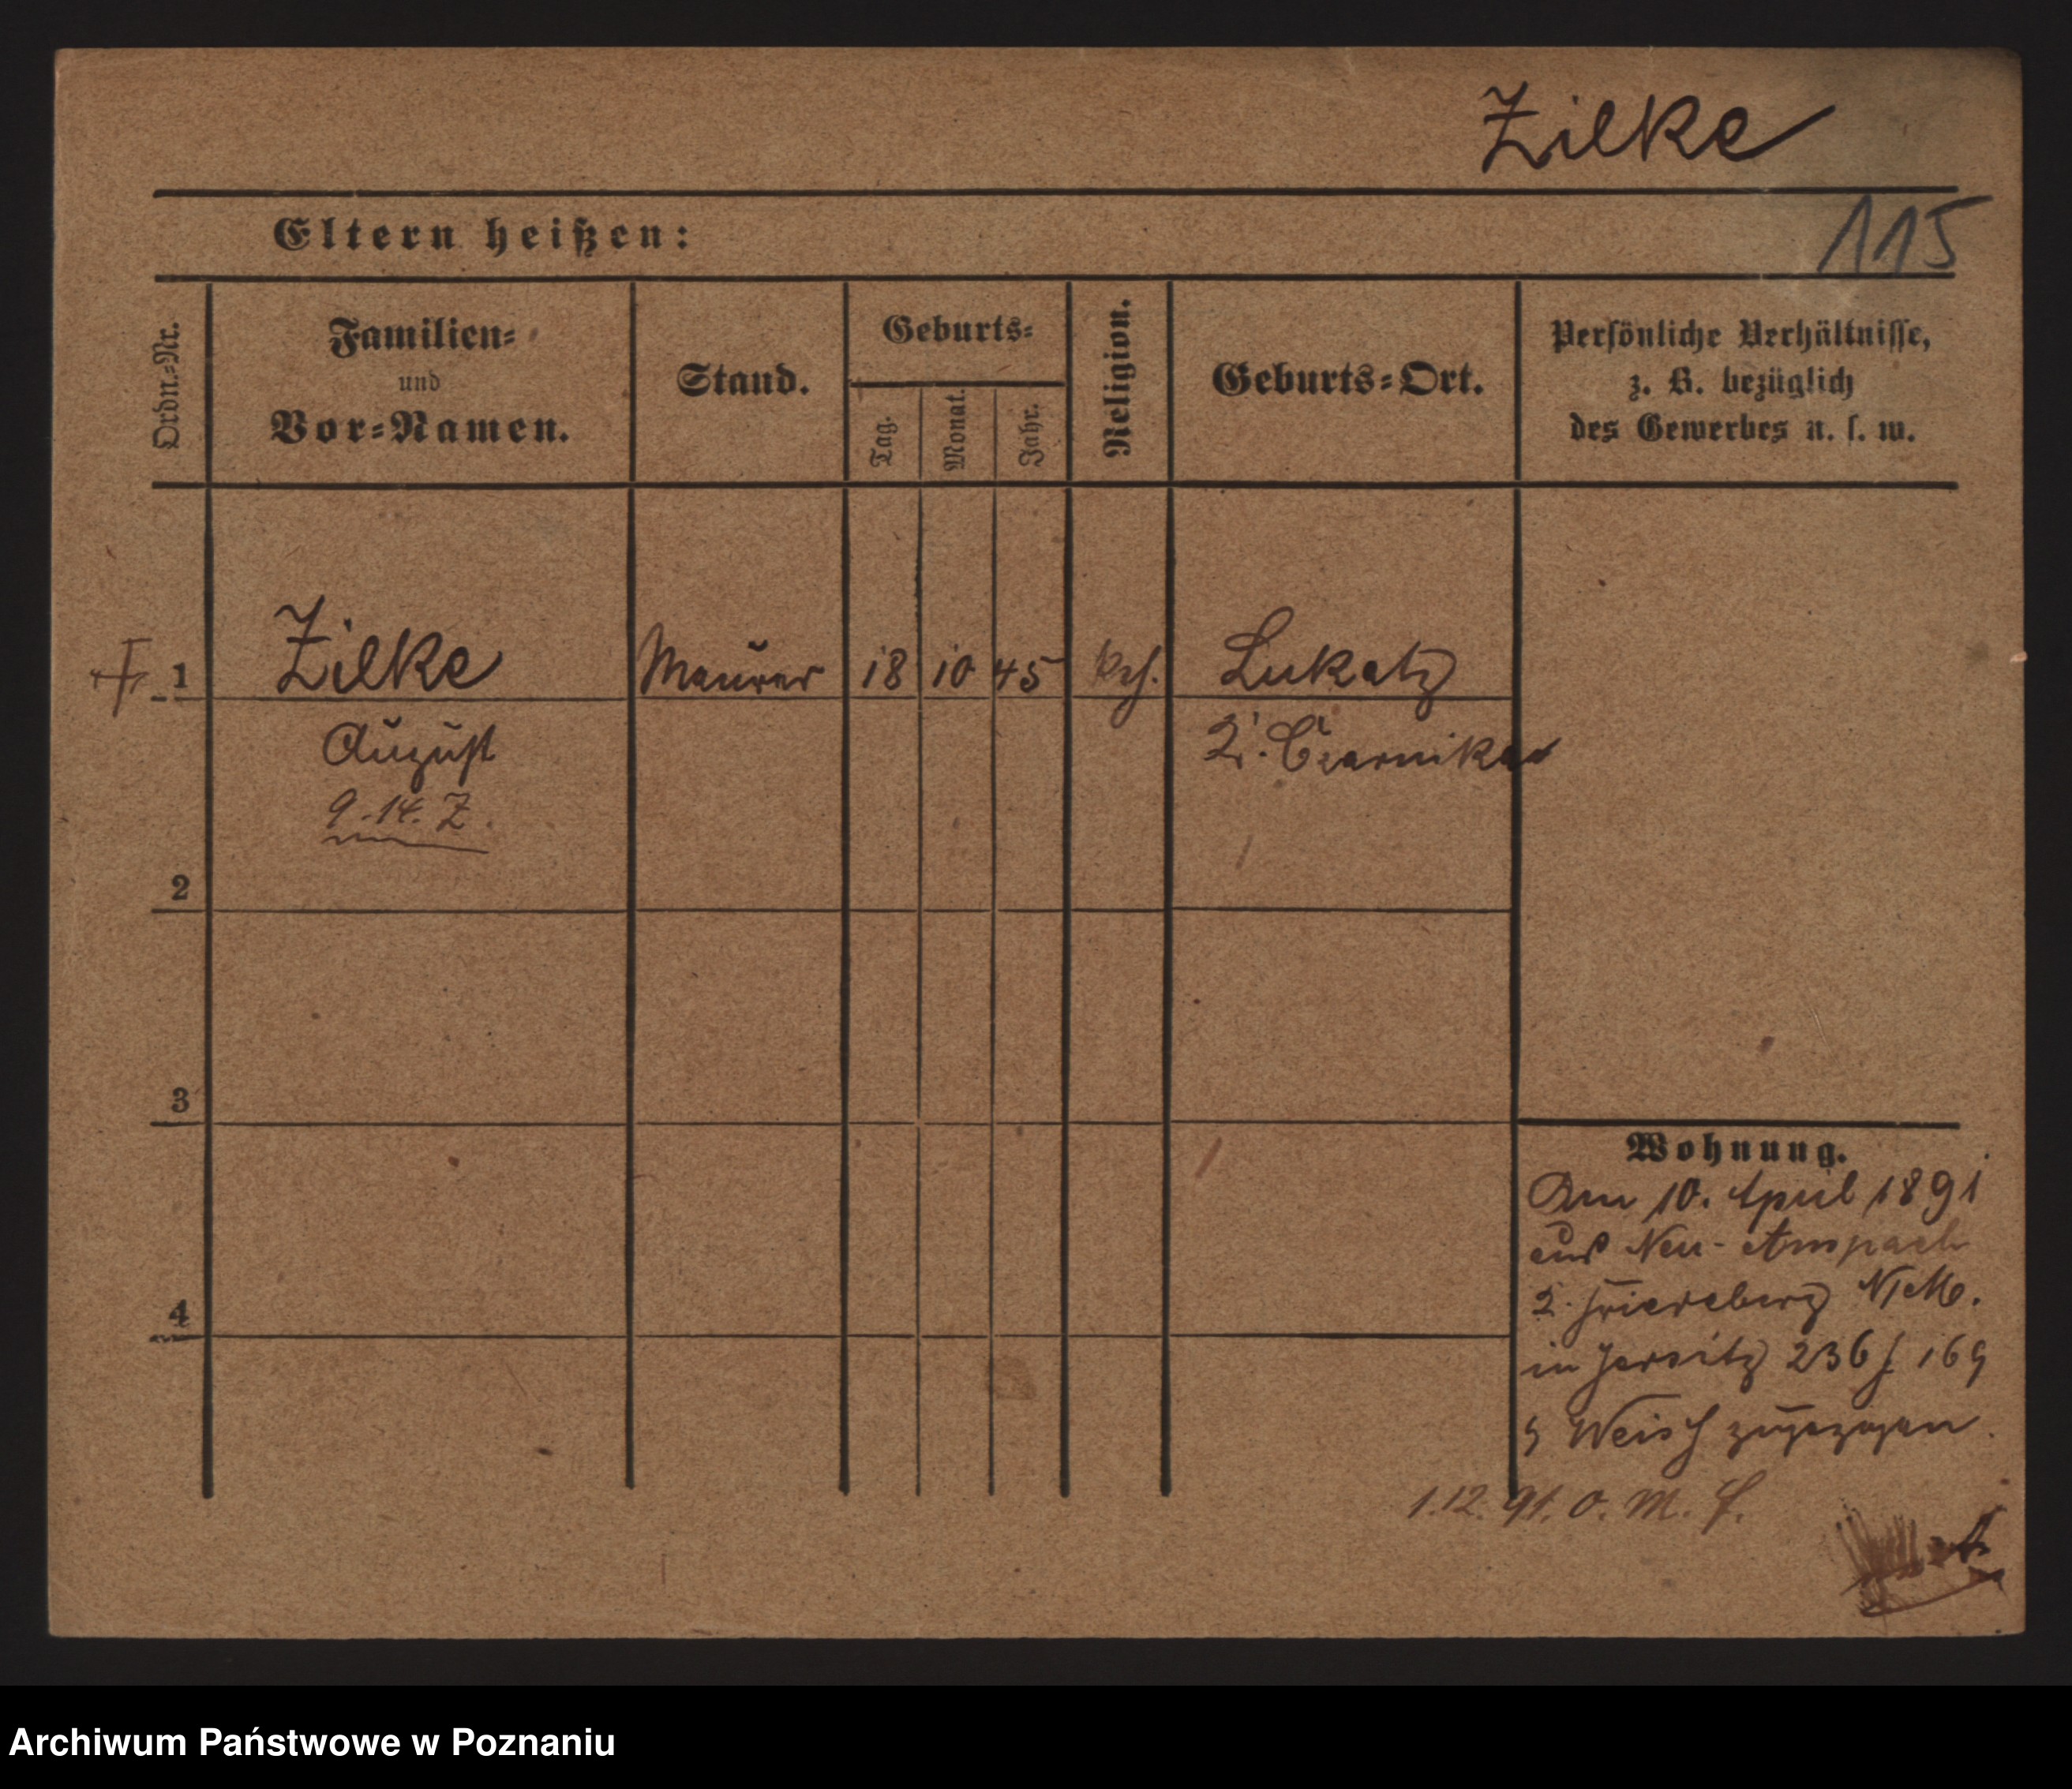 Zilke
115
Eltern heißen:
Ordn.-Nr.
Familien-
und
Vor-Namen.
Stand.
Geburts-
Tag.
Monat.
Jahr.
Religion.
Geburts-Ort.
Persönliche Verhältnisse,
z. B. bezüglich
des Gewerbes u. s. w.
1 Zilke Maurer 18 10 45 Lukatz
August
9.14. Z.
Czarnikau
2
3
4
Wohnung.
Am 10. April 1891
aus Neu-Anspach
Friedeberg N/M.
in Jersitz 236 169
Weiss zugezogen
1.12.91. O. M.
Archiwum Państwowe w Poznaniu